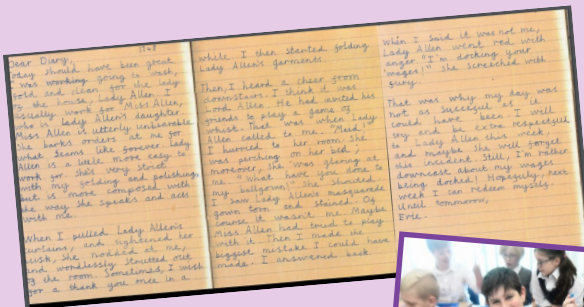 Dear Diary,
Today should have been great
I was working going to wash,
fold and clean for the lady
of the house, Lady Allen. I
usually work for Miss Allen,
who is Lady Allen's daughter.
Miss Allen is utterly unbearable
She barks orders at me for
what seams like forever. Lady
Allen is a little more easy to
work for. She's very strict
with my folding and polishing,
but is more composed with
the way she speaks and acts
with me.
When I pulled Lady Allen's
curtains, and tightened her
she nodded at me,
and wordlessly strutted out
of the room. Sometimes, I wish
for a thank you once in a
while I then started folding
Lady Allen's garments.
Then, I heard a cheer from
downstairs. I think it was
Lord Allen. He had invited his
friends to play a game of
whist. That was when Lady
Allen called to me. "Maid!"
I hurried to her room. She
was perching on her bed,
moreover, she was glaring at
me. "What have you done to
my ballgown!" She shouted.
I saw Lady Allen's masquerade
gown torn and stained. Of
course it wasn't me. Maybe
Miss Allen had tried to play
with it. Then I made the
biggest mistake I could have
made. I answered back.
When I said it was not me,
Lady Allen went red with
anger. "I'm docking your
wages!" She screeched with
fury.
That was why my day was
not as succesful as it
could have been. I will
try and be extra respectful
to Lady Allen this week,
and maybe she will forget
this incident. Still, I'm rather
downcase about my wages
being docked! Hopefully, next
week I can redeem myself.
Until tommorow,